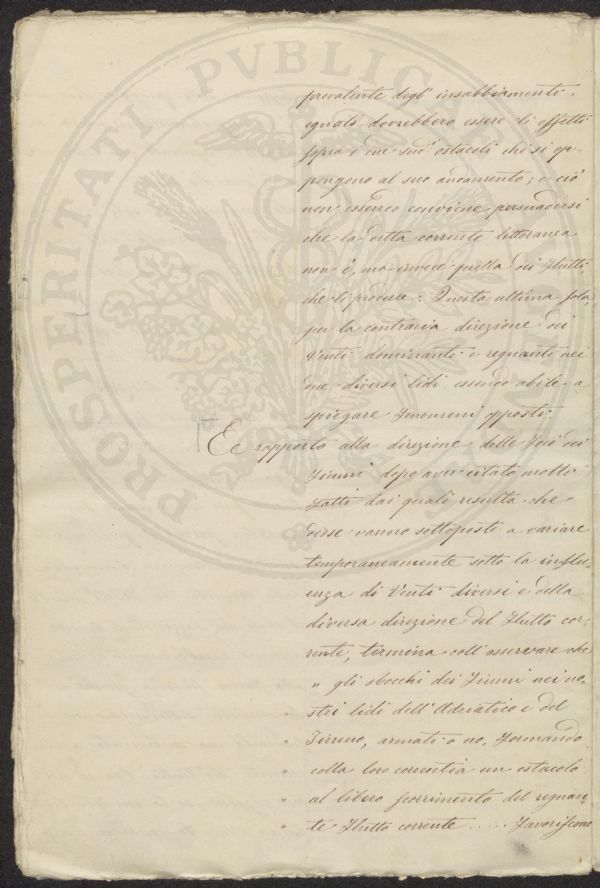 prevalente degl' insabbiamenti,
eguali dovrebbero essere li effetti
sopra i due suoi ostacoli che si op-
pongono al suo andamento; e ciò
non essendo conviene persuadersi
che la detta corrente littoranea
non è, ma invece quella dei flutti
che li produce: Questa ultima sola,
per la contraria direzione dei
Venti dominanti e regnanti nei
due diversi lidi essendo abile a
spiegare fenomeni opposti.
Ee rapporto alla direzione delle Foci dei
Fiumi dopo aver citato molti
Fatti dai quali resulta che
desse vanno sottoposte a variare
temporaneamente sotto la influ-
enza di Venti diversi e della
diversa direzione del Flutto cor-
rente, termina coll' osservare che
" gli sbocchi dei Fiumi nei no-
" stri lidi dell' Adriatico e del
" Tirreno, armati o no, formando
" colla loro correntia un ostacolo
" al libero scorrimento del regnan-
" te Flutto corrente ..... favoriscono
PROSPERITATI PVBLICAE